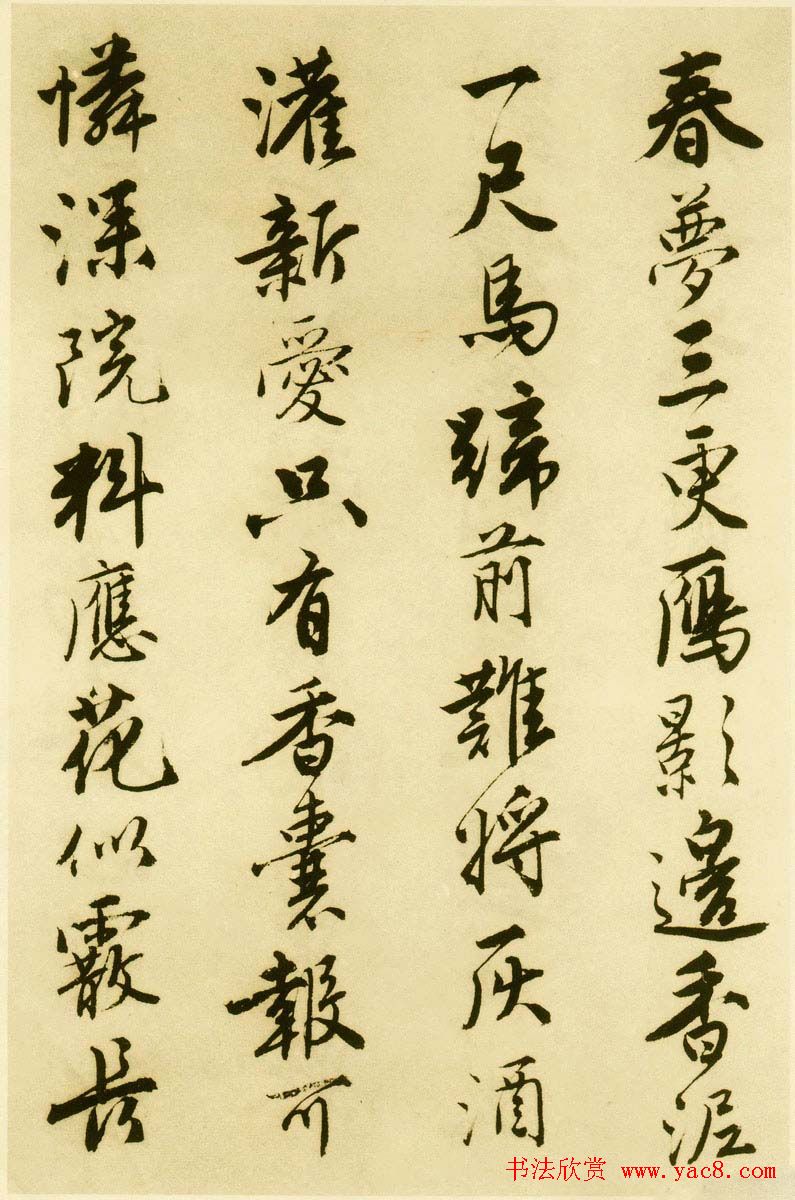 春夢三更鴈影邊香泥
一尺馬蹄前難將灰酒
灌新愛只有香囊報可
憐深院料應花似霰長
书法欣赏 www.yac8.com